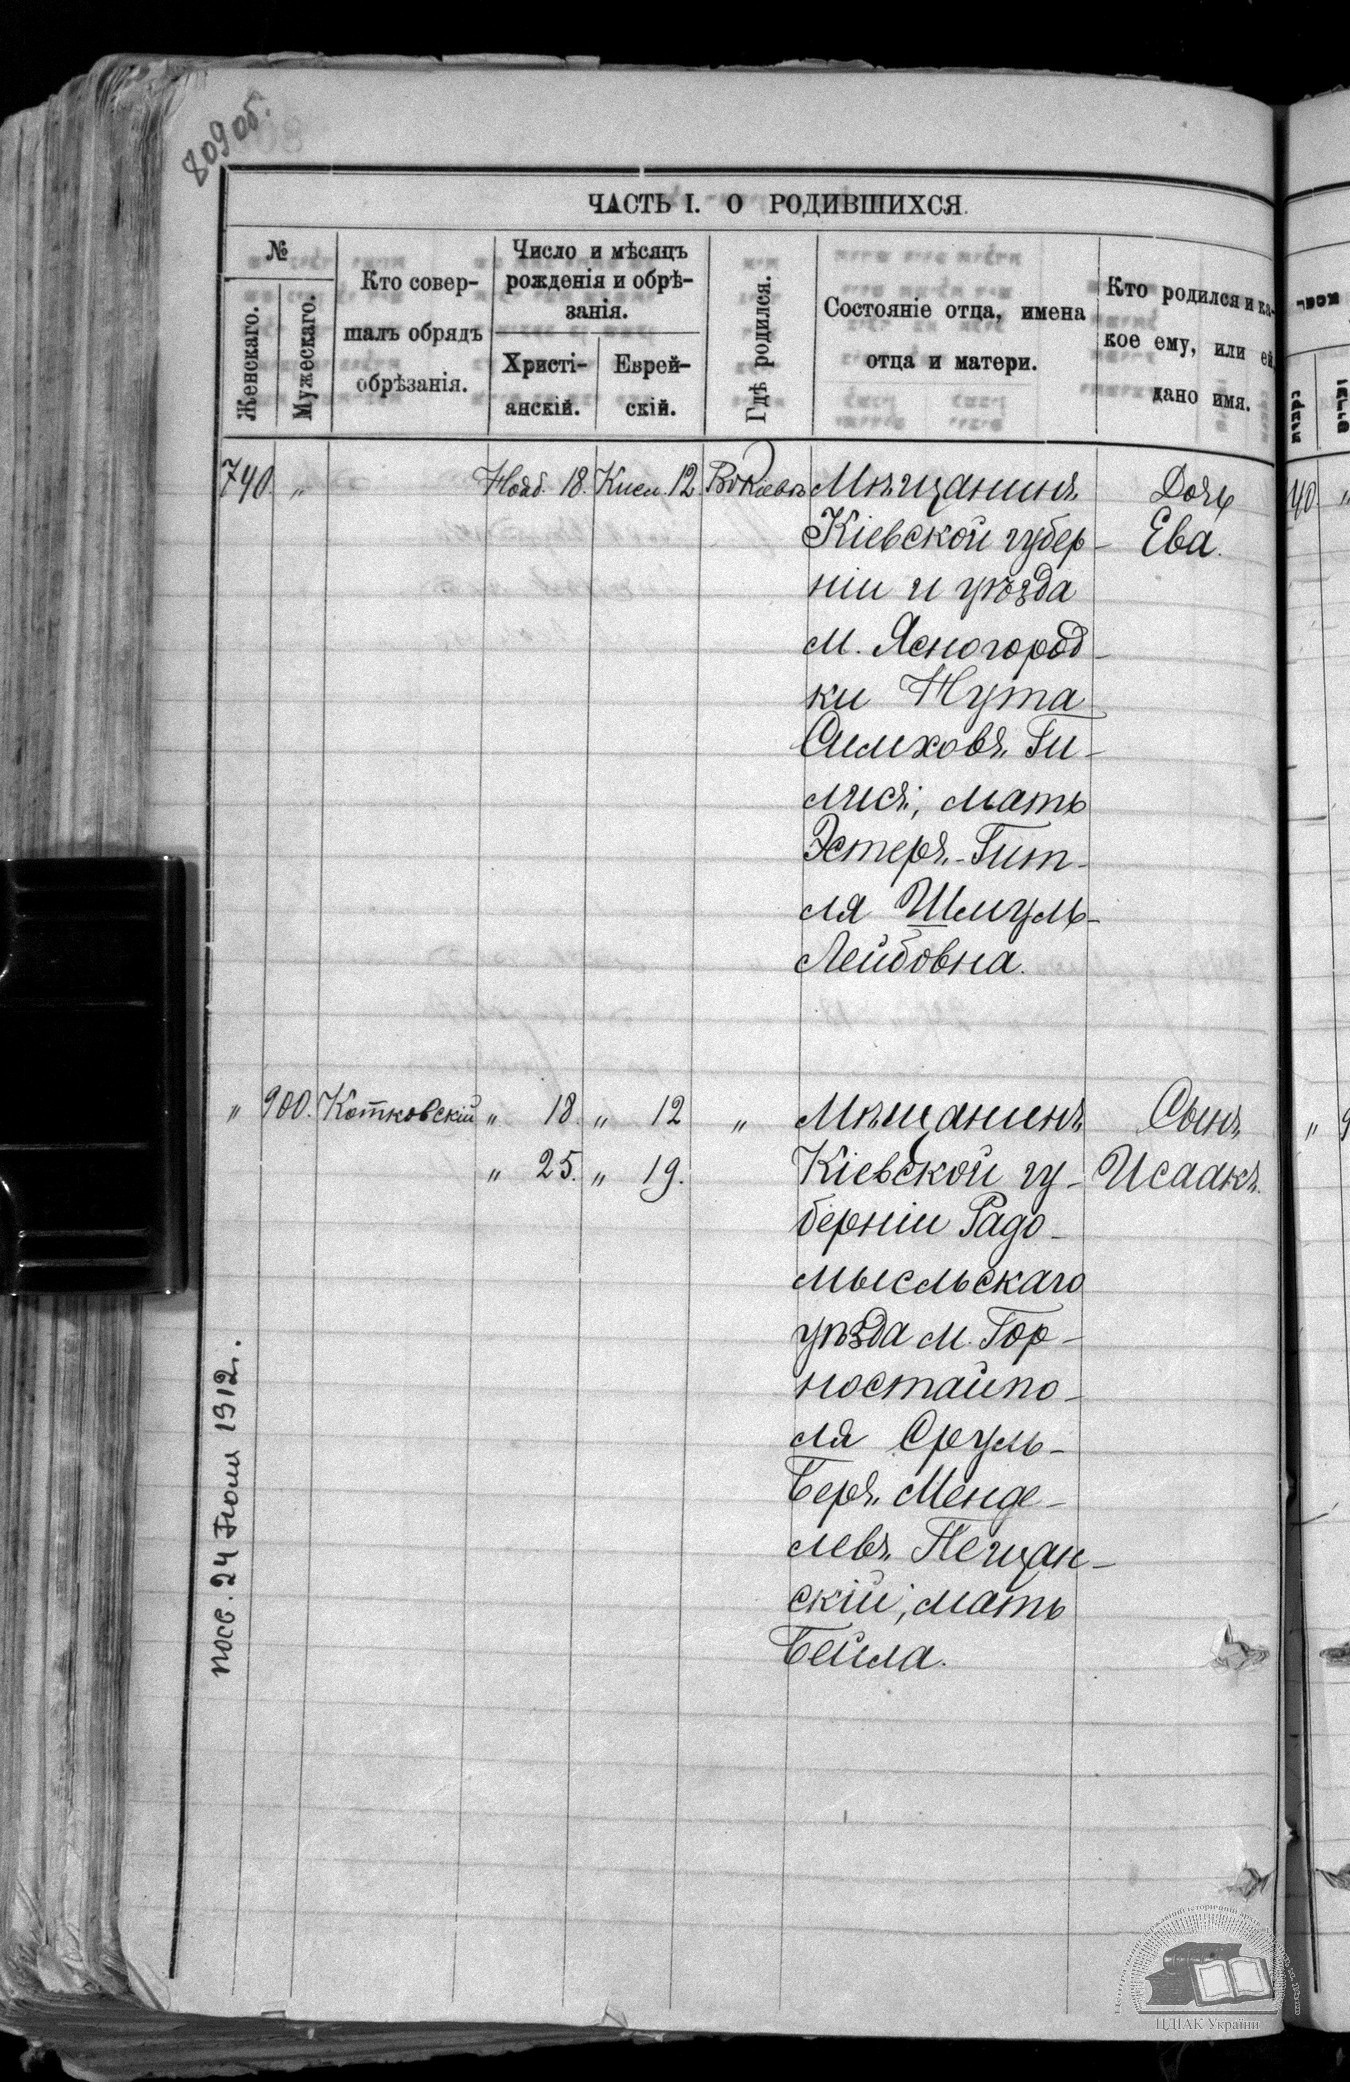 809 об.
ЧАСТЬ I. О РОДИВШИХСЯ.
№
Женскаго.
Мужескаго.
Кто совер-
шалъ обрядъ
обрѣзанія.
Число и мѣсяцъ
рожденія и обрѣ-
занія.
Христі-
анскій.
Еврей-
скій.
Гдѣ родился.
Состояніе отца, имена
отца и матери.
Кто родился и ка-
кое ему, или ей,
дано имя.
740. „ Нояб. 18. Кисл. 12. Въ Кіевѣ Мѣщанинъ Дочь
Кіевской губер- Ева.
ніи и уѣзда
м. Ясногород-
ки Нута
Симховъ Ги-
лисъ; мать
Эстеръ-Гит-
ля Шмуль-
Лейбовна.
„ 900. Котковскій „ 18. „ 12 „ Мѣщанинъ Сынъ
„ 25. „ 19. Кіевской гу- Исаакъ.
берніи Радо-
мысльскаго
уѣзда м. Гор-
ностайпо-
ля Сруль-
Беръ Менде-
левъ Пещан-
скій, мать
Бейла.
24 Іюля 1912 г.
מספר
נקבות
זכרים
40. „
„ 9
ЦДІАК України